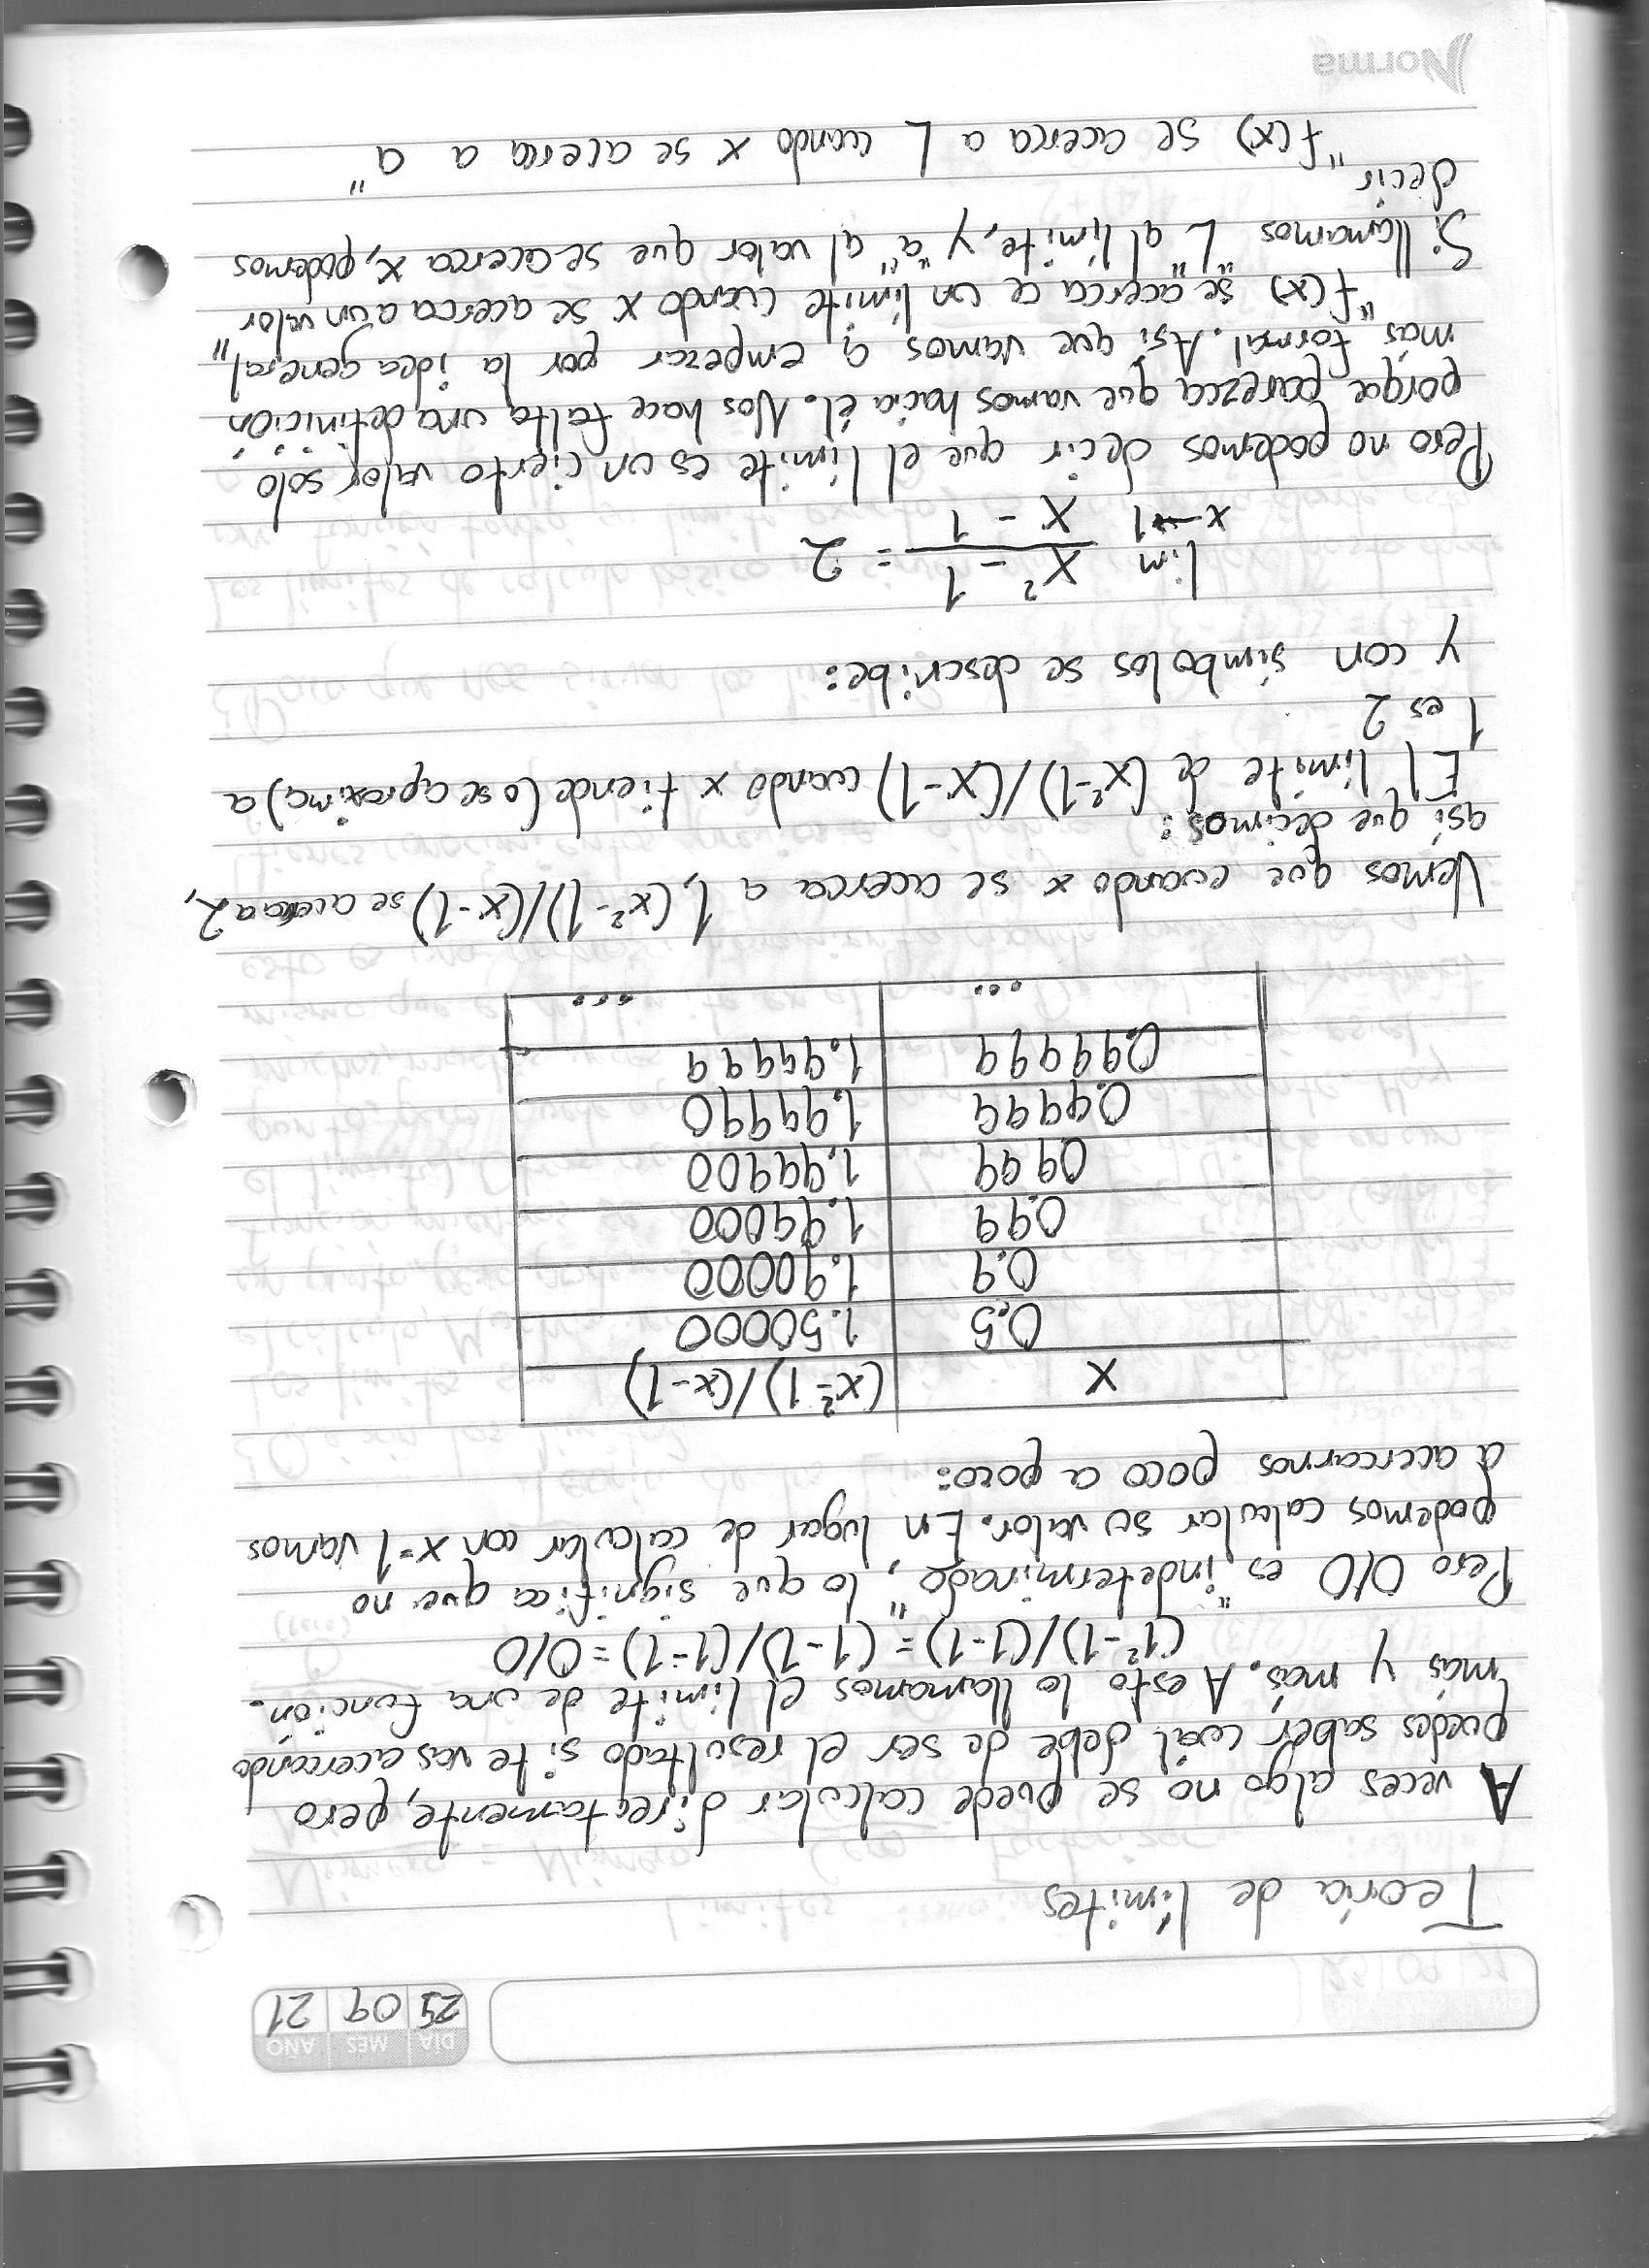 DÍA MES AÑO
09 21
Teoría de límites
A veces algo no se puede calcular directamente, pero
puedes saber cuál debe de ser el resultado si te vas acercando
más y más. A esto lo llamamos el límite de una función.
(1²-1)/(1-1)=(1-1)/(1-1)=0/0
Pero 0/0 es "indeterminado", lo que significa que no
podemos calcular su valor. En lugar de calcular con x=1 vamos
a acercarnos poco a poco:
x (x²-1)/(x-1)
0.5 1.50000
0.9 1.90000
0.99 1.99000
0.999 1.99900
0.9999 1.99990
0.99999 1.99999
... ...
Vemos que cuando x se acerca a 1, (x²-1)/(x-1) se acerca a 2,
así que decimos:
El límite de (x²-1)/(x-1) cuando x tiende (o se aproxima) a
1 es 2
y con símbolos se describe:
lim x²-1 = 2
x→1 x-1
Pero no podemos decir que el límite es un cierto valor solo
porque parezca que vamos hacia él. Nos hace falta una definición
más formal. Así que vamos a empezar por la idea general,
"f(x) se acerca a un límite cuando x se acerca a un valor"
Si llamamos "L" al límite, y "a" al valor que se acerca x, podemos
decir
"f(x) se acerca a L cuando x se acerca a a"
Norma